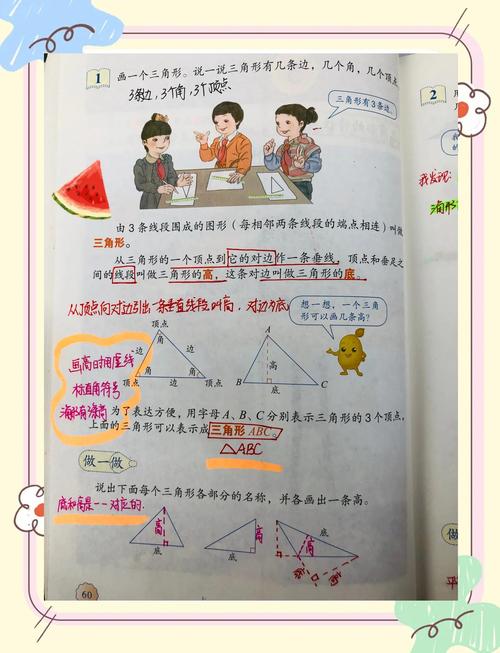 1 画一个三角形。说一说三角形有几条边，几个角，几个顶点
3条边,3个角,3个顶点
三角形有3条边。
由3条线段围成的图形（每相邻两条线段的端点相连）叫做
三角形。
从三角形的一个顶点到它的对边作一条垂线，顶点和垂足之
间的线段叫做三角形的高，这条对边叫做三角形的底。
从顶点向对边引出一条垂直线段叫高，对边为底
想一想，一个三角
形可以画几条高？
顶点
角
边 边
角 角
顶点 边 顶点
A
高
B 底 C
画高时用虚线
标直角符号
为了表达方便，用字母A、B、C分别表示三角形的3个顶点，
上面的三角形可以表示成三角形ABC
△ABC
做一做
说出下面每个三角形各部分的名称，并各画出一条高。
底和高是一一对应的.
高
底
高
底
高
底
60
2
我发现:
做